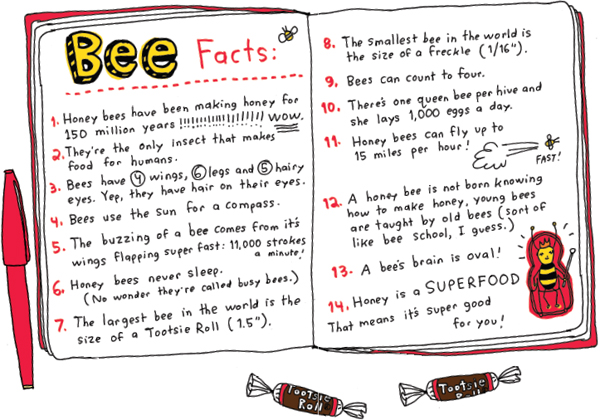 Bee Facts:
1. Honey bees have been making honey for
150 million years !!!!!!!!!!!!!!!!!!! WOW.
2. They're the only insect that makes
food for humans.
3. Bees have 4 wings, 6 legs and 5 hairy
eyes. Yep, they have hair on their eyes.
4. Bees use the sun for a compass.
5. The buzzing of a bee comes from it's
wings flapping super fast: 11,000 strokes
a minute!
6. Honey bees never sleep.
(No wonder they're called busy bees.)
7. The largest bee in the world is the
size of a Tootsie Roll (1.5").
8. The smallest bee in the world is
the size of a freckle (1/16").
9. Bees can count to four.
10. There's one queen bee per hive and
she lays 1,000 eggs a day.
11. Honey bees can fly up to
15 miles per hour!
FAST!
12. A honey bee is not born knowing
how to make honey, young bees
are taught by old bees (sort of
like bee school, I guess.)
13. A bee's brain is oval!
14. Honey is a SUPERFOOD
That means it's super good
for you!
Tootsie
Roll
Tootsie
Roll